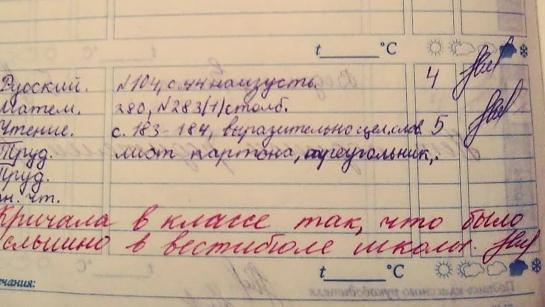 t °C
Русский. №104, с.44 наизусть. 4
Матем. 280, №283(1)столб.
Чтение. с. 183-184, выразительно 5
Труд. лист картона, треугольник,
Труд.
н. чт.
Кричала в классе так, что было
слышно в вестибюле школы.
чания: t °C